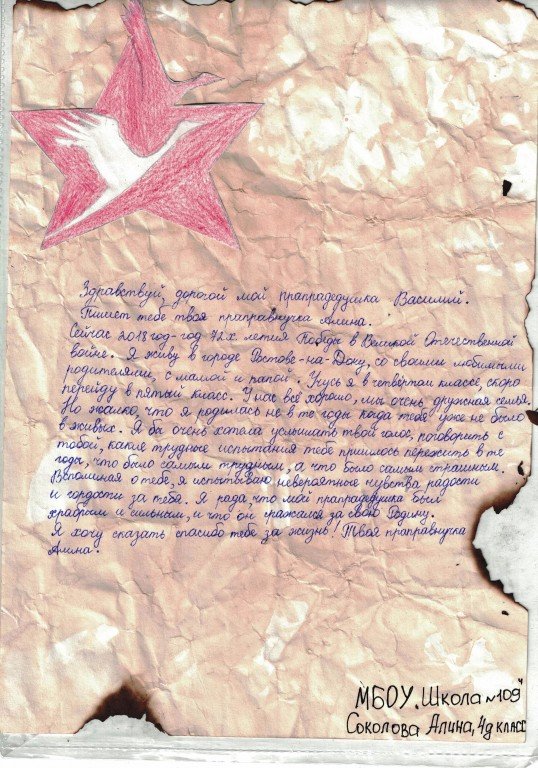 Здравствуй, дорогой мой прапрадедушка Василий.
Пишет тебе твоя праправнучка Алина.
Сейчас 2018 год-год 72х летия Победы в Великой Отечественной
войне. Я живу в городе Ростове-на-Дону, со своими любимыми
родителями, с мамой и папой. Учусь я в четвёртом классе, скоро
перейду в пятый класс. У нас всё хорошо, мы очень дружная семья.
Но жалко, что я родилась не в те годы когда тебя уже не было
в живых. Я бы очень хотела услышать твой голос, поговорить с
тобой, какие трудные испытания тебе пришлось пережить в те
годы, что было самым трудным, а что было самым страшным.
Вспоминая о тебе, я испытываю невероятные чувства радости
и гордости за тебя. Я рада, что мой прапрадедушка был
храбрым и сильным, и что он сражался за свою Родину.
Я хочу сказать спасибо тебе за жизнь! Твоя праправнучка
Алина.
МБОУ "Школа №109"
Соколова Алина, 4д класс